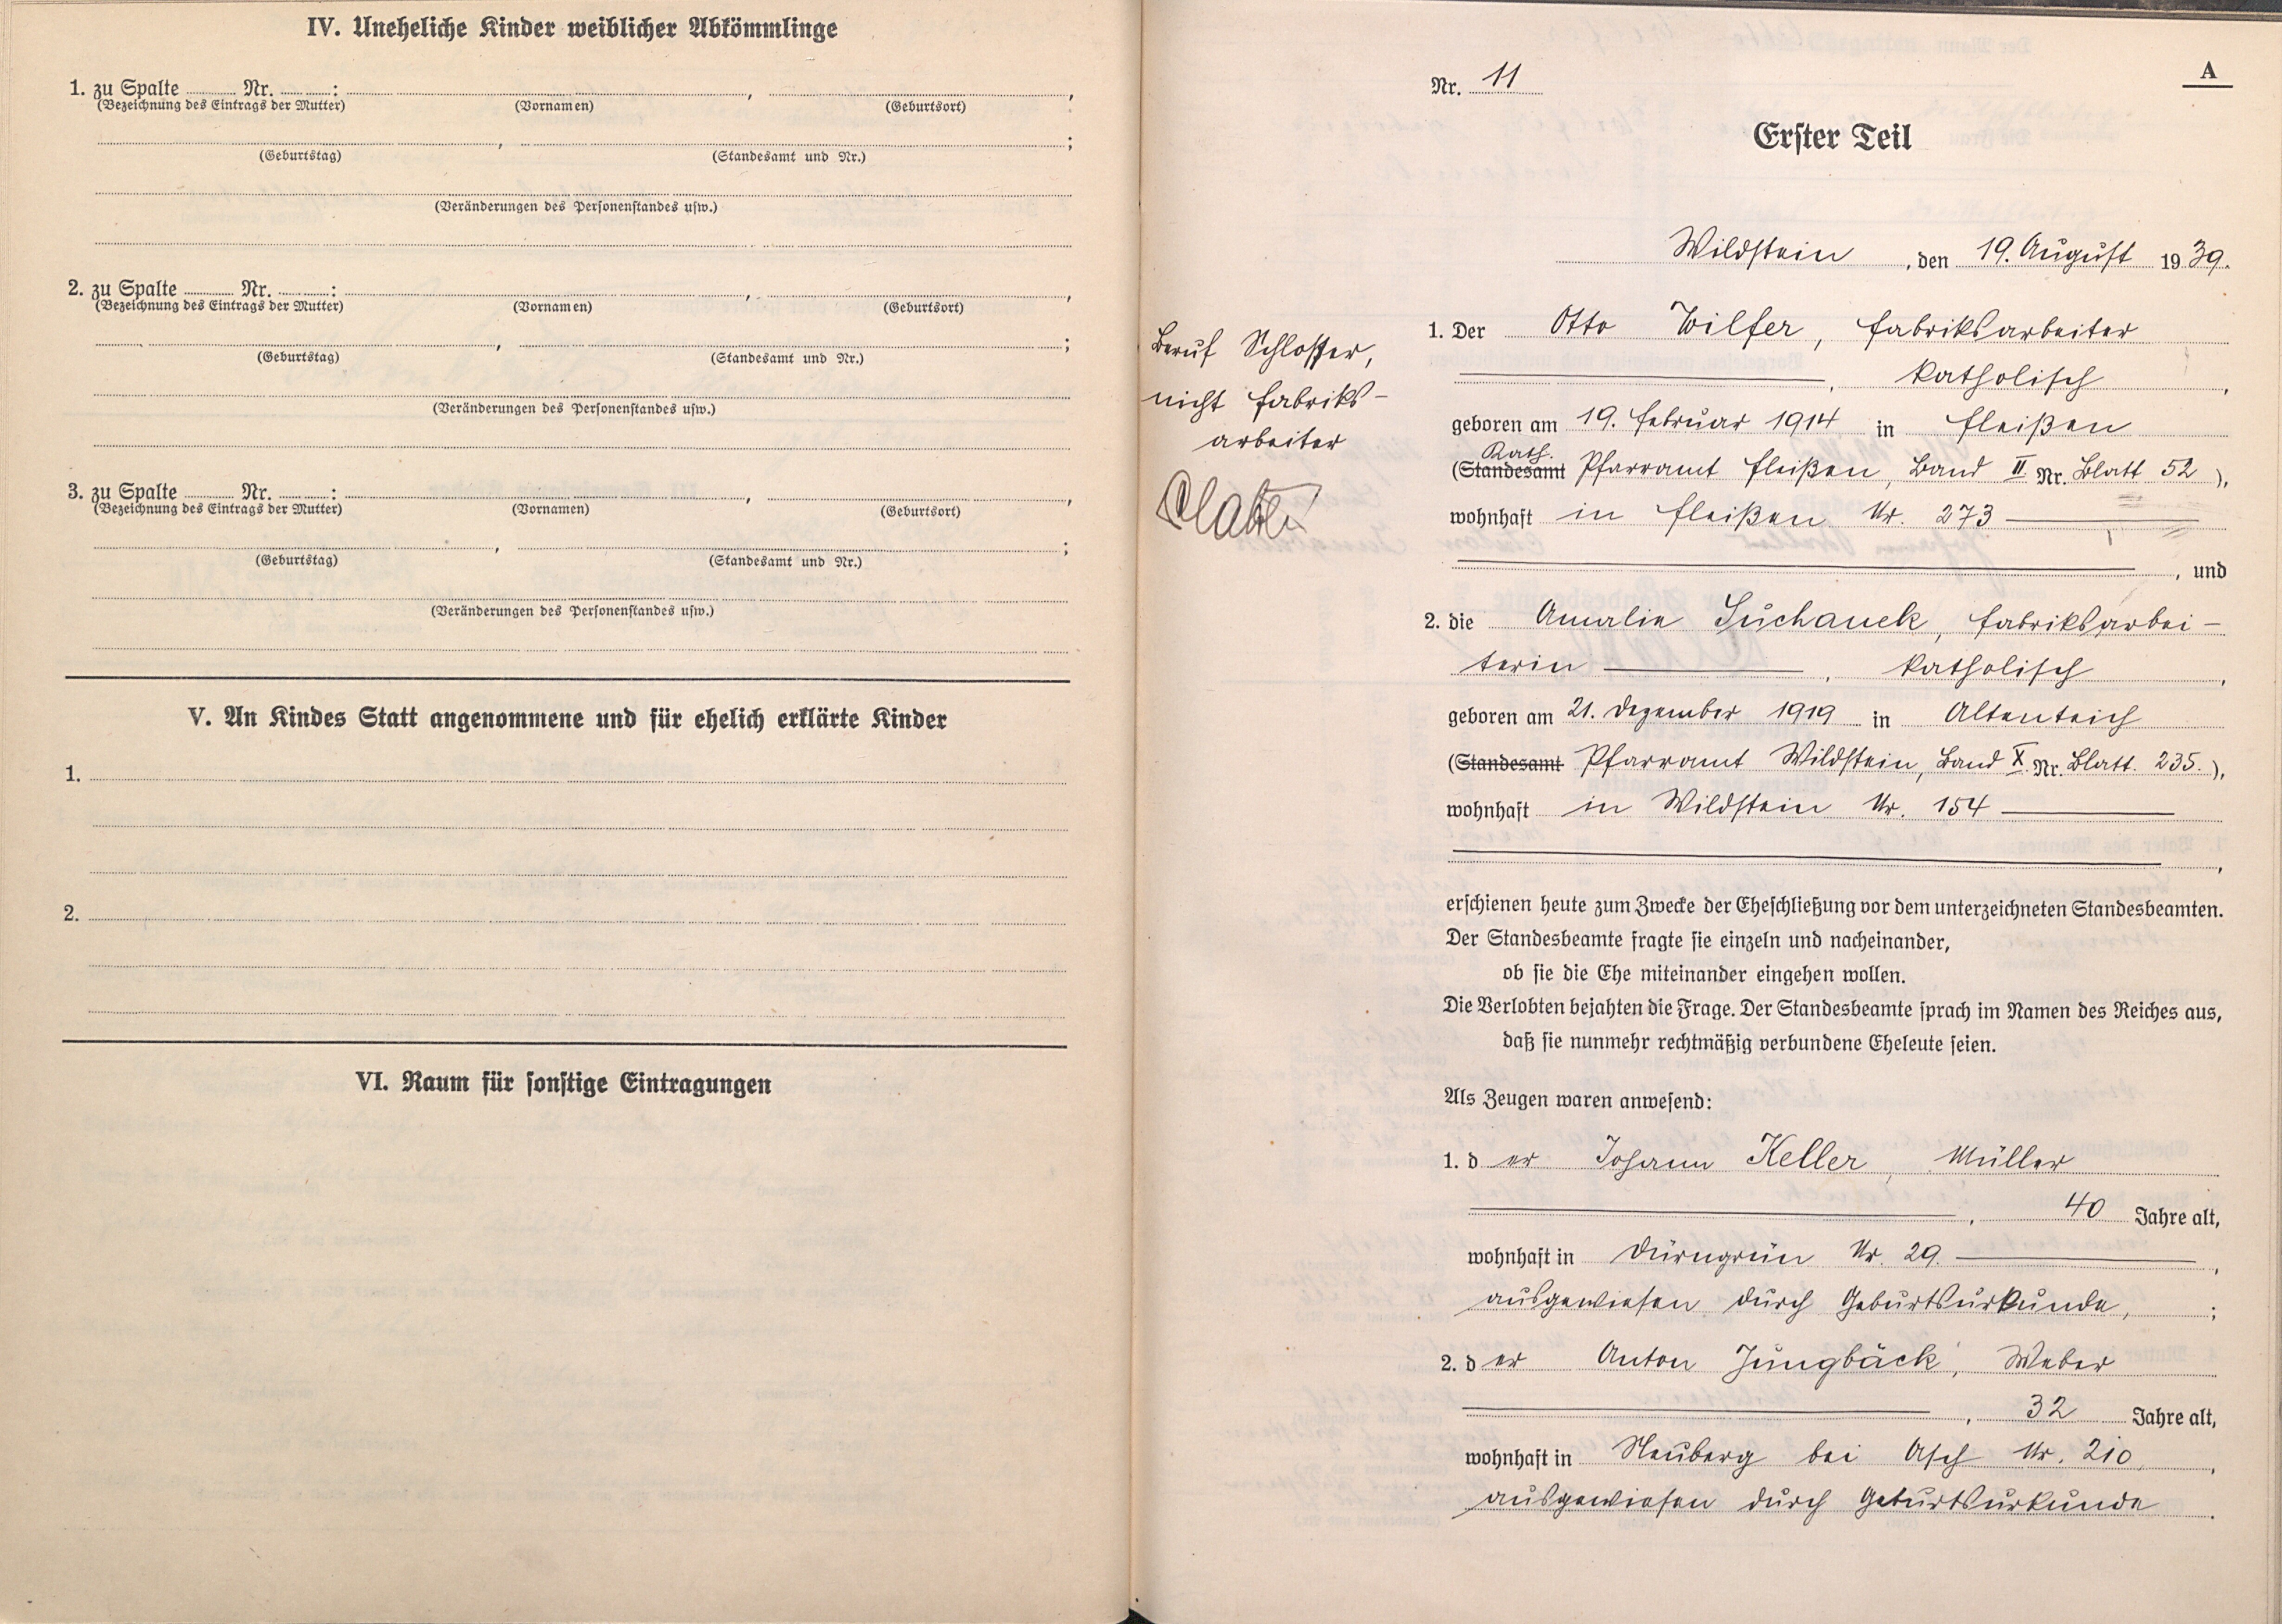 IV. Uneheliche Kinder weiblicher Abkömmlinge
1. zu Spalte Nr. : , ,
(Bezeichnung des Eintrags der Mutter) (Vornamen) (Geburtsort)
, ;
(Geburtstag) (Standesamt und Nr.)
(Veränderungen des Personenstandes usw.)
2. zu Spalte Nr. : , ,
(Bezeichnung des Eintrags der Mutter) (Vornamen) (Geburtsort)
, ;
(Geburtstag) (Standesamt und Nr.)
(Veränderungen des Personenstandes usw.)
3. zu Spalte Nr. : , ,
(Bezeichnung des Eintrags der Mutter) (Vornamen) (Geburtsort)
, ;
(Geburtstag) (Standesamt und Nr.)
(Veränderungen des Personenstandes usw.)
V. An Kindes Statt angenommene und für ehelich erklärte Kinder
1.
2.
VI. Raum für sonstige Eintragungen
A
Nr. 11
Erster Teil
Wildstein, den 19. August 1939.
Beruf Schlosser,
nicht Fabriks-
arbeiter
1. Der Otto Wilfer, Fabriksarbeiter
, katholisch,
geboren am 19. Februar 1914 in Fleißen
Kath.
(Standesamt Pfarramt Fleißen, Band II. Nr. Blatt 52),
wohnhaft in Fleißen Nr. 273
, und
2. die Amalie Suchanek, Fabriksarbei-
terin, katholisch,
geboren am 21. Dezember 1919 in Altenteich
(Standesamt Pfarramt Wildstein, Band X. Nr. Blatt. 235.),
wohnhaft in Wildstein Nr. 154
,
erschienen heute zum Zwecke der Eheschließung vor dem unterzeichneten Standesbeamten.
Der Standesbeamte fragte sie einzeln und nacheinander,
ob sie die Ehe miteinander eingehen wollen.
Die Verlobten bejahten die Frage. Der Standesbeamte sprach im Namen des Reiches aus,
daß sie nunmehr rechtmäßig verbundene Eheleute seien.
Als Zeugen waren anwesend:
1. der Johann Keller, Müller
, 40 Jahre alt,
wohnhaft in Dürngrün Nr. 29.,
ausgewiesen durch Geburtsurkunde, ;
2. der Anton Jungbäck, Weber
, 32 Jahre alt,
wohnhaft in Neuberg bei Asch Nr. 210,
ausgewiesen durch Geburtsurkunde.